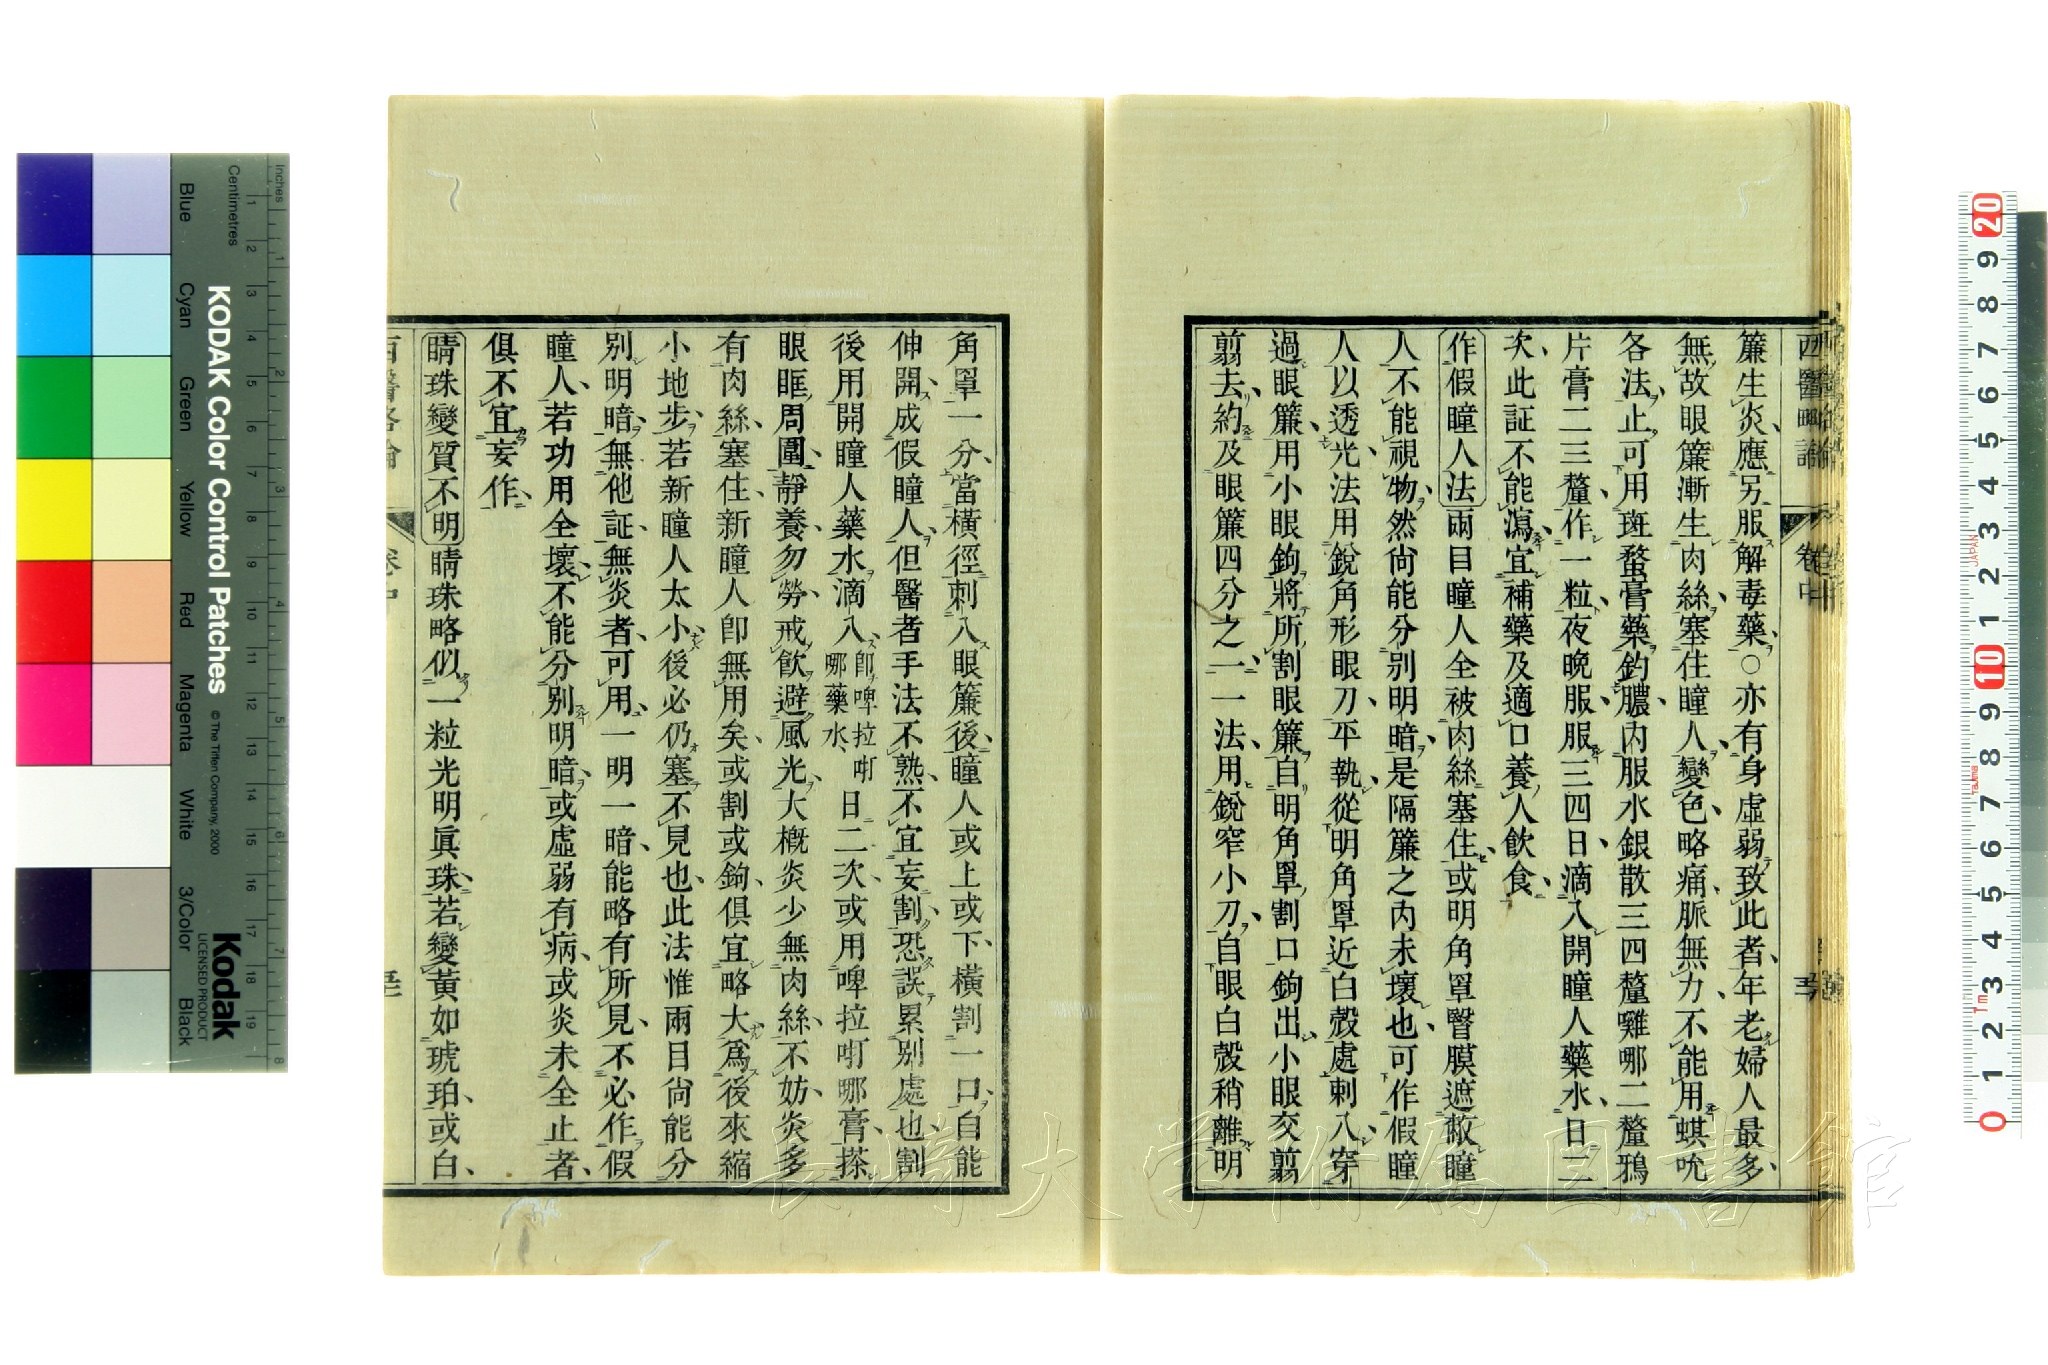 西醫略論 卷中
簾生炎、應另服解毒藥、○亦有身虛弱致此者、年老婦人最多、
無故眼簾漸生肉絲塞住瞳人、變色、略痛、脈無力、不能用蜞吮
各法、止可用斑蝥膏藥釣膿、內服水銀散三四釐囄哪二釐鴉
片膏二三釐、作一粒、夜晚服、服三四日、滴入開瞳人藥水、日二
次、此証不能瀉、宜補藥及適口養人飲食、
作假瞳人法兩目瞳人全被肉絲塞住、或明角罩瞖膜遮蔽瞳
人、不能視物、然尙能分別明暗、是隔簾之內未壞也、可作假瞳
人以透光、法用銳角形眼刀、平執、從明角罩近白殼處刺入、穿
過眼簾、用小眼鉤、將所割眼簾、自明角罩割口鉤出、小眼交翦
翦去、約及眼簾四分之一、一法、用銳窄小刀、自眼白殼稍離明
角罩一分、當橫徑刺入眼簾後、瞳人或上或下、橫割一口、自能
伸開、成假瞳人、但醫者手法不熟、不宜妄割、恐誤累別處也、割
後用開瞳人藥水滴入、卽啤拉㖠哪藥水、日二次、或用啤拉㖠哪膏、搽
眼眶周圍、靜養、勿勞、戒飮、避風光、大槪炎少無肉絲、不妨、炎多
有肉絲、塞住、新瞳人卽無用矣、或割或鉤、俱宜略大、爲後來縮
小地步、若新瞳人太小、後必仍塞不見也、此法惟兩目尙能分
別明暗、無他証、無炎者、可用、一明一暗、能略有所見、不必作假
瞳人、若功用全壞、不能分別明暗、或虛弱有病、或炎未全止者、
俱不宜妄作、
睛珠變質不明睛珠略似一粒光明眞珠、若變黃如琥珀、或白、
卷中
KODAK Color Control Patches
© The Tiffen Company, 2000
Kodak
LICENSED PRODUCT
Inches
Centimetres
Blue Cyan Green Yellow Red Magenta White 3/Color Black
長崎大学附属図書館